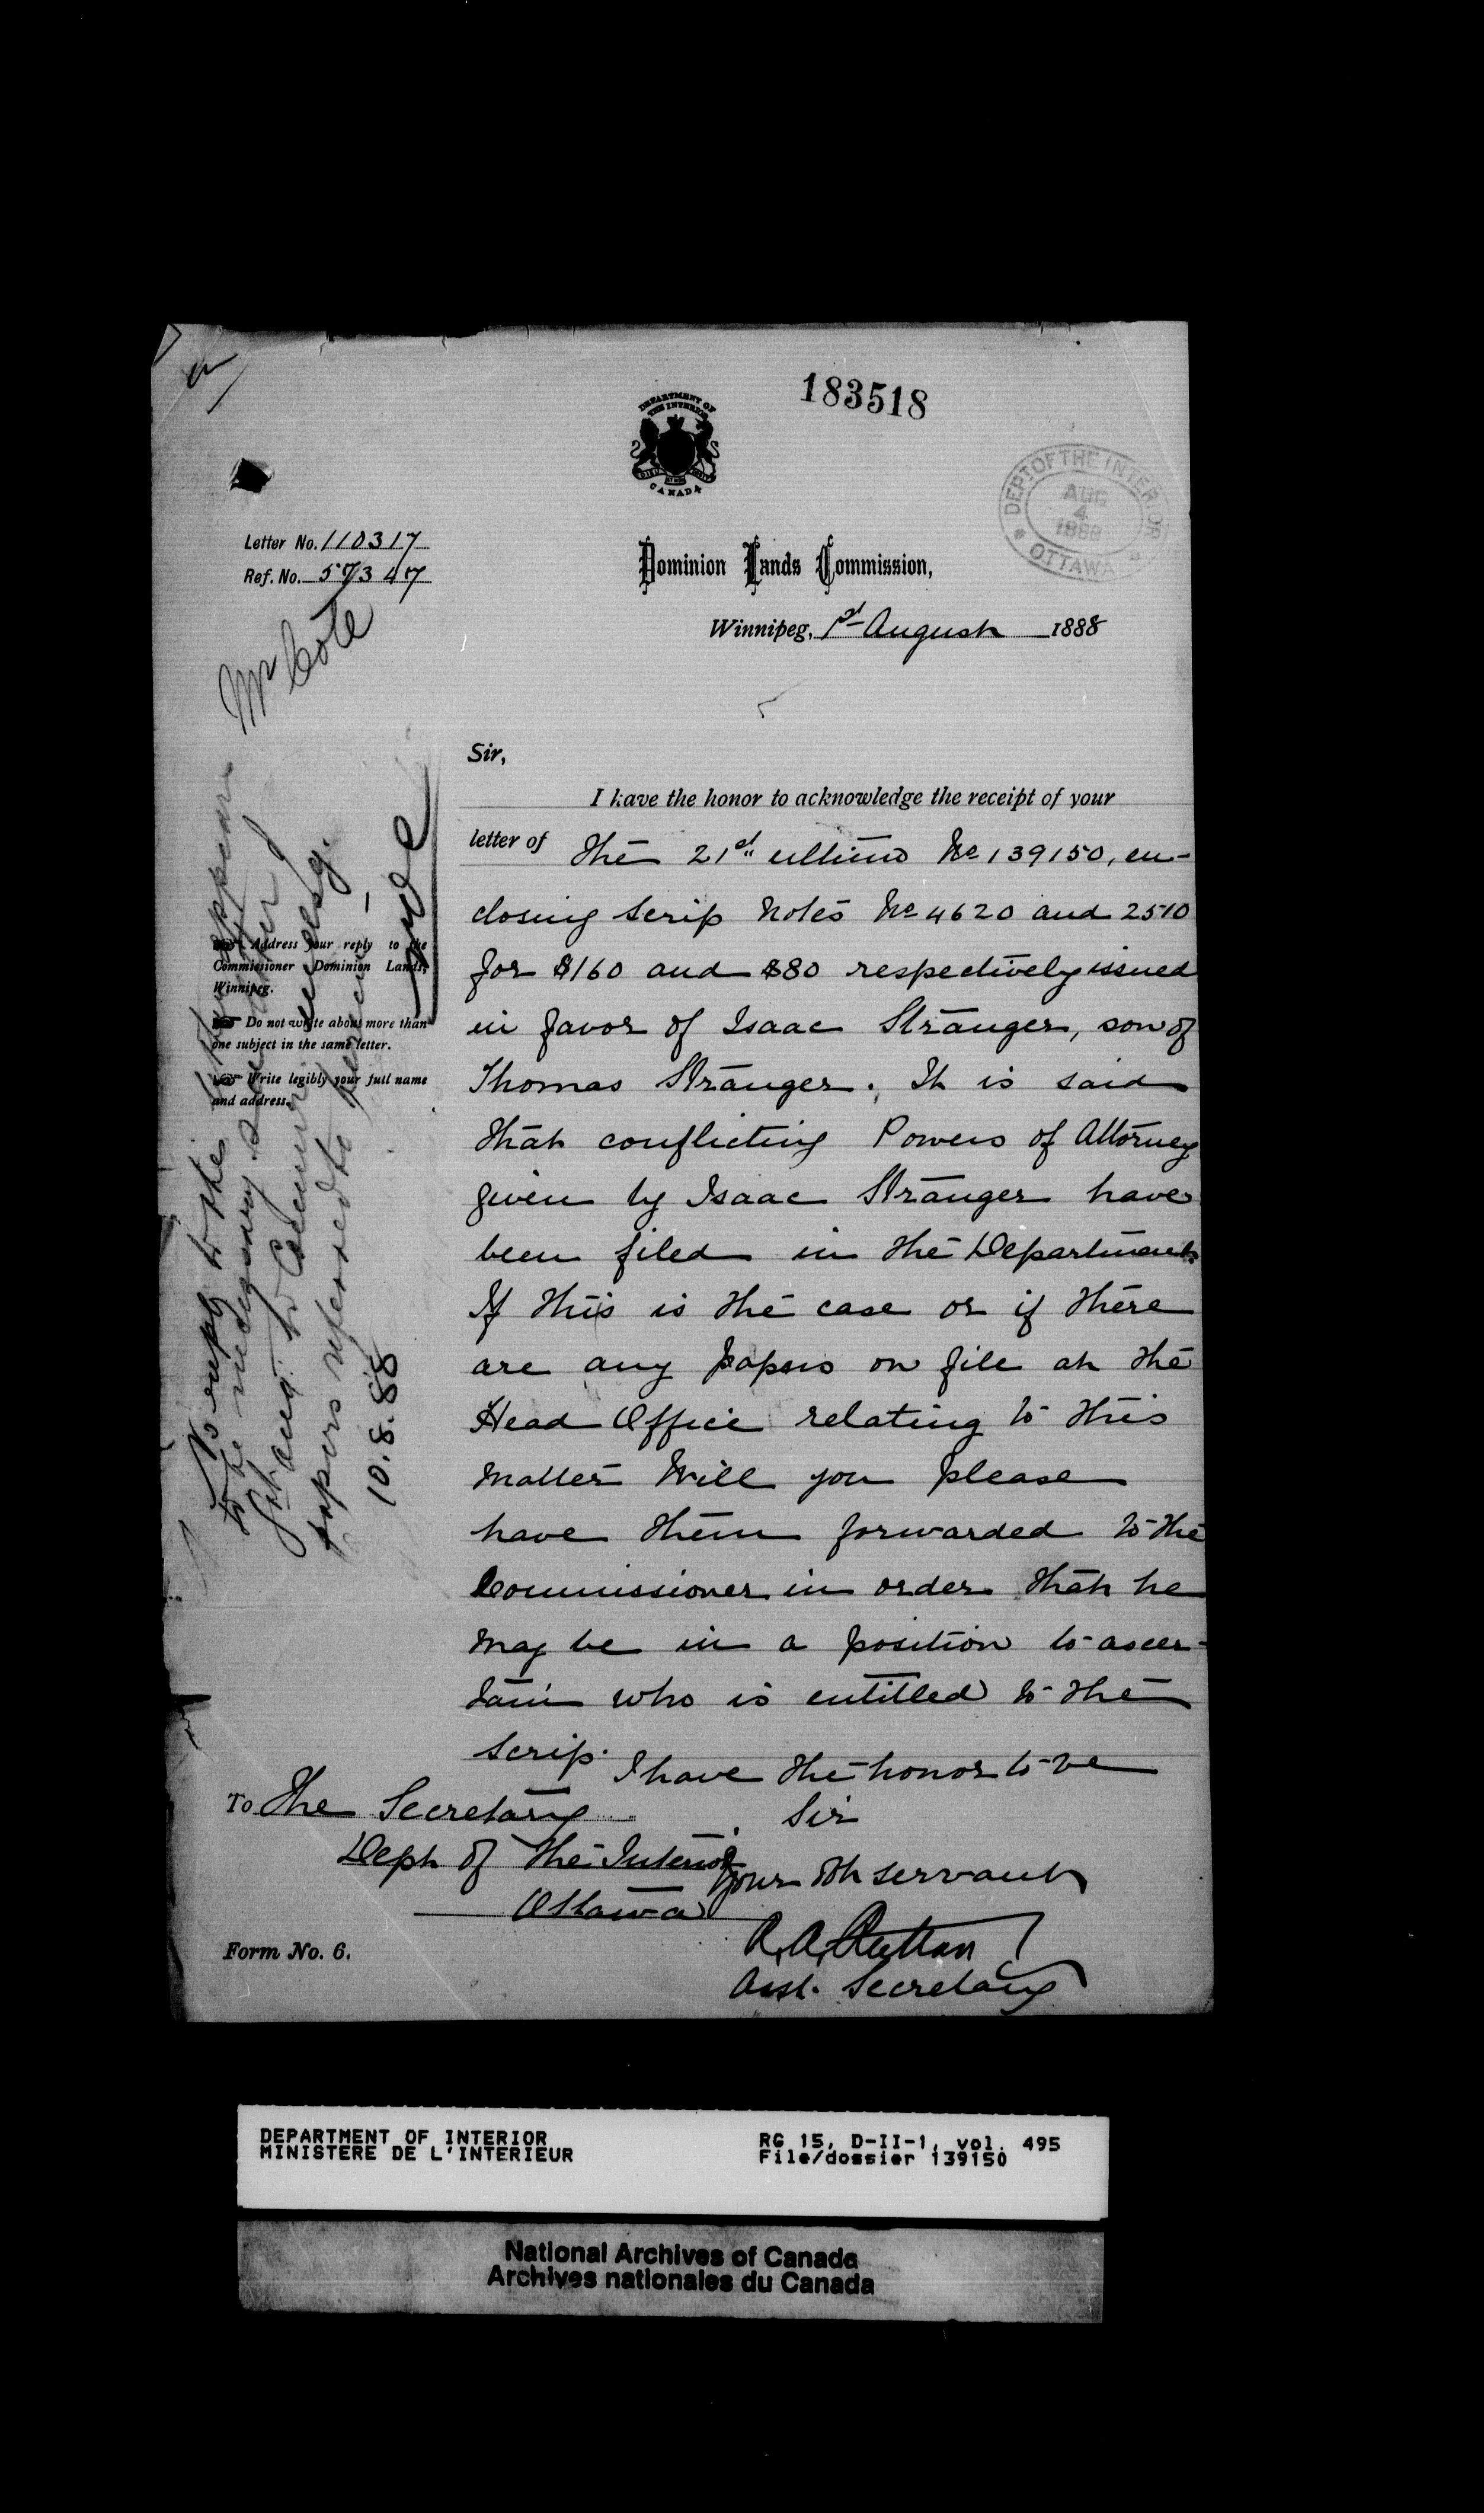 183518
DEPARTMENT OF
THE INTERIOR
CANADA
DEPT OF THE INTERIOR
AUG
4
1888
OTTAWA
Letter No. 110317
Ref. No. 57347
Dominion Lands Commission,
Winnipeg, 1st August 1888
Mr Cote
Sir,
I have the honor to acknowledge the receipt of your
letter of the 21st ultimo No 139150, en-
closing Scrip Notes No 4620 and 2510
for $160 and $80 respectively issued
in favor of Isaac Stranger, son of
Thomas Stranger. It is said
that conflicting Powers of Attorney
given by Isaac Stranger have
been filed in the Department
If this is the case or if there
are any papers on file at the
Head Office relating to this
matter Will you please
have them forwarded to the
Commissioner in order that he
may be in a position to ascer-
tain who is entitled to the
scrip.
I have the honor to be
Sir
Your Obt servant
R. A. Ruttan
Asst. Secretary
Address your reply to the
Commissioner Dominion Lands,
Winnipeg.
Do not write about more than
one subject in the same letter.
Write legibly your full name
and address.
No reply to this appears
to be necessary.
papers referred to
10.8.88
To The Secretary
Dept of the Interior
Ottawa
Form No. 6.
DEPARTMENT OF INTERIOR
MINISTERE DE L'INTERIEUR
RG 15, D-II-1, vol. 495
File/dossier 139150
National Archives of Canada
Archives nationales du Canada